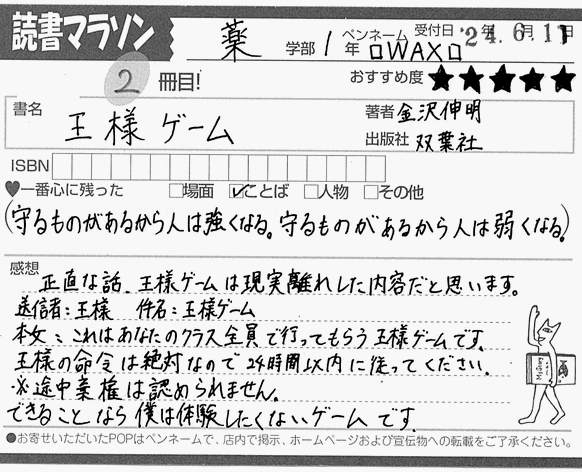 読書マラソン 薬 学部 1年 ペンネーム □WAX□ 受付日 '24年 6月 11日
2 冊目! おすすめ度 ★★★★★
書名 王様ゲーム 著者 金沢伸明
出版社 双葉社
ISBN
♥一番心に残った □場面 ☑ことば □人物 □その他
(守るものがあるから人は強くなる。守るものがあるから人は弱くなる。)
感想
正直な話、王様ゲームは現実離れした内容だと思います。
送信者:王様 件名:王様ゲーム
本文:これはあなたのクラス全員で行ってもらう王様ゲームです。
王様の命令は絶対なので24時間以内に従ってください。
※途中棄権は認められません。
できることなら僕は体験したくないゲームです。
●お寄せいただいたPOPはペンネームで、店内で掲示、ホームページおよび宣伝物への転載をご了承ください。